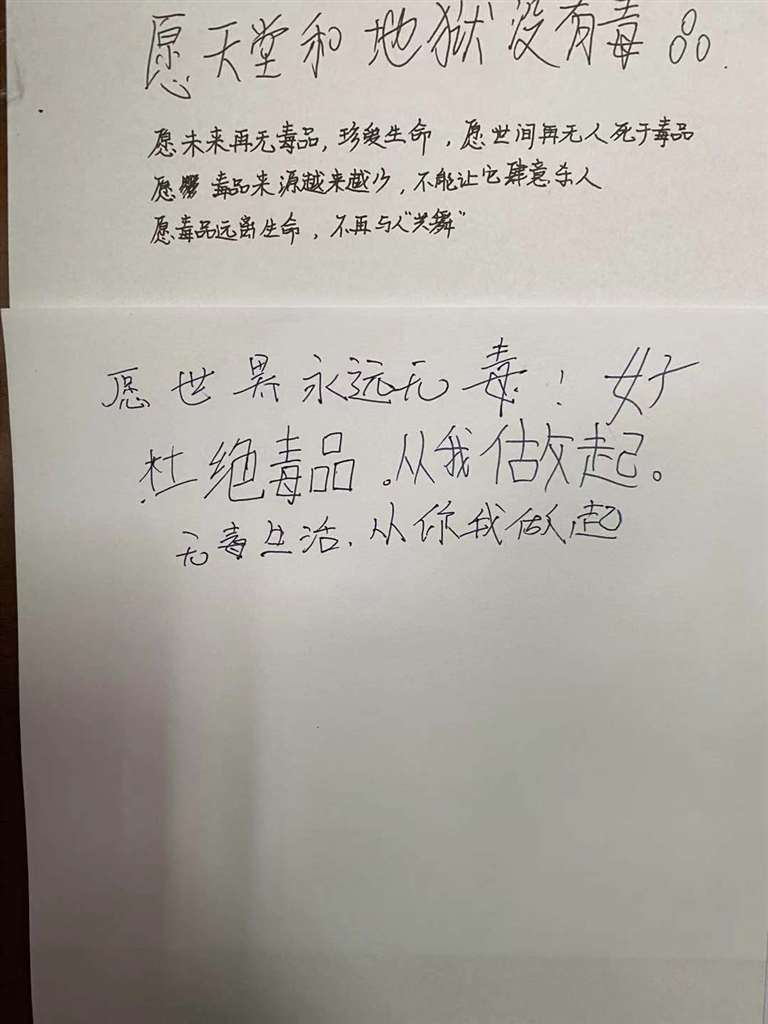 愿天堂和地狱没有毒品.
愿未来再无毒品,珍爱生命,愿世间再无人死于毒品
愿 毒品来源越来越少,不能让它肆意杀人
愿毒品远离生命,不再与人“共舞”
愿世界永远无毒!好
杜绝毒品。从我做起。
无毒生活.从你我做起